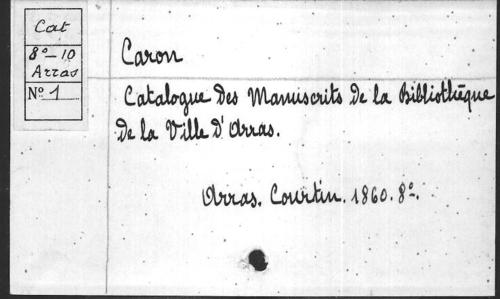 Cat
8º-10
Arras
Nº 1
Caron
Catalogue des Manuscrits de la Bibliothèque
de la Ville d'Arras.
Arras. Courtin. 1860. 8º.